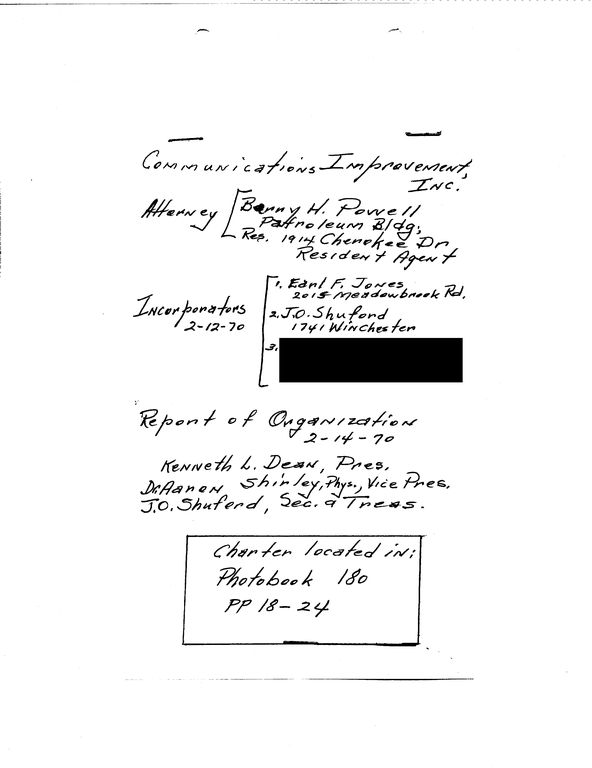 Communications Improvement,
Inc.
Attorney
Barry H. Powell
Petroleum Bldg;
Res. 1914 Cherokee Dr
Resident Agent
Incorporators
2-12-70
1. Earl F. Jones
2015 Meadowbrook Rd.
2. J.O. Shuford
1741 Winchester
3.
Report of Organization
2-14-70
Kenneth L. Dean, Pres.
Dr. Aaron Shirley, Phys., Vice Pres.
J.O. Shuford, Sec. & Treas.
Charter located in:
Photobook 180
PP 18-24